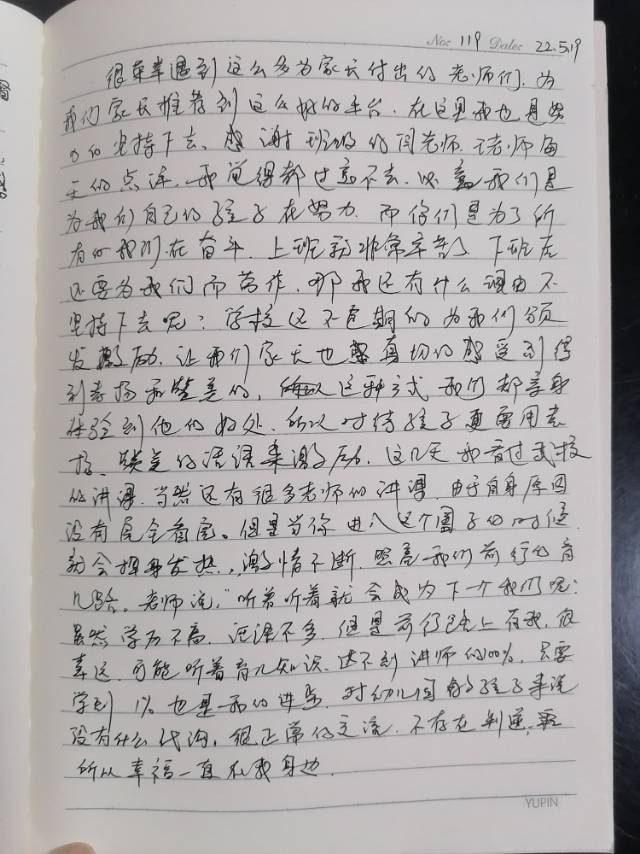 No: 119 Date: 22.5.19
很荣幸遇到这么多为家长付出的老师们.为
我们家长推荐到这么好的平台.在这里我也是努
力的坚持下去、感谢班级的闫老师.老师每
天的点评.我觉得都过意不去.以我们是
为我们自己的孩子在努力.而你们是为了所
有的我们在奋斗.上班就非常辛苦了下班后
还要为我们而劳作.哪我还有什么理由不
坚持下去呢?学校还不定期的为我们颁
发激励.让我们家长也真切的感受到得
到表扬和赞美的,所以这种方式我们都亲身
体验到他的好处.所以对待孩子更要用表
扬、赞美的语课来激励.这几天我看过我校
的讲课.当然还有很多老师的讲课.由于自身原因
没有完全看完。但是当你进入这个圈子的时候.
就会挥身发热,激情不断.照亮我们前行的育
儿路.老师说,"听着听着就会成为下一个我们呢:
虽然学历不高.记课不多.但是前行路上有我.很
幸运.可能听着育儿知识.达不到讲师的100%.只要
学到1%也是我的进步.对幼儿园的孩子来说
没有什么代沟.很正常的交流.不存在叛逆,
所以幸福一直在我身边.
YUPIN